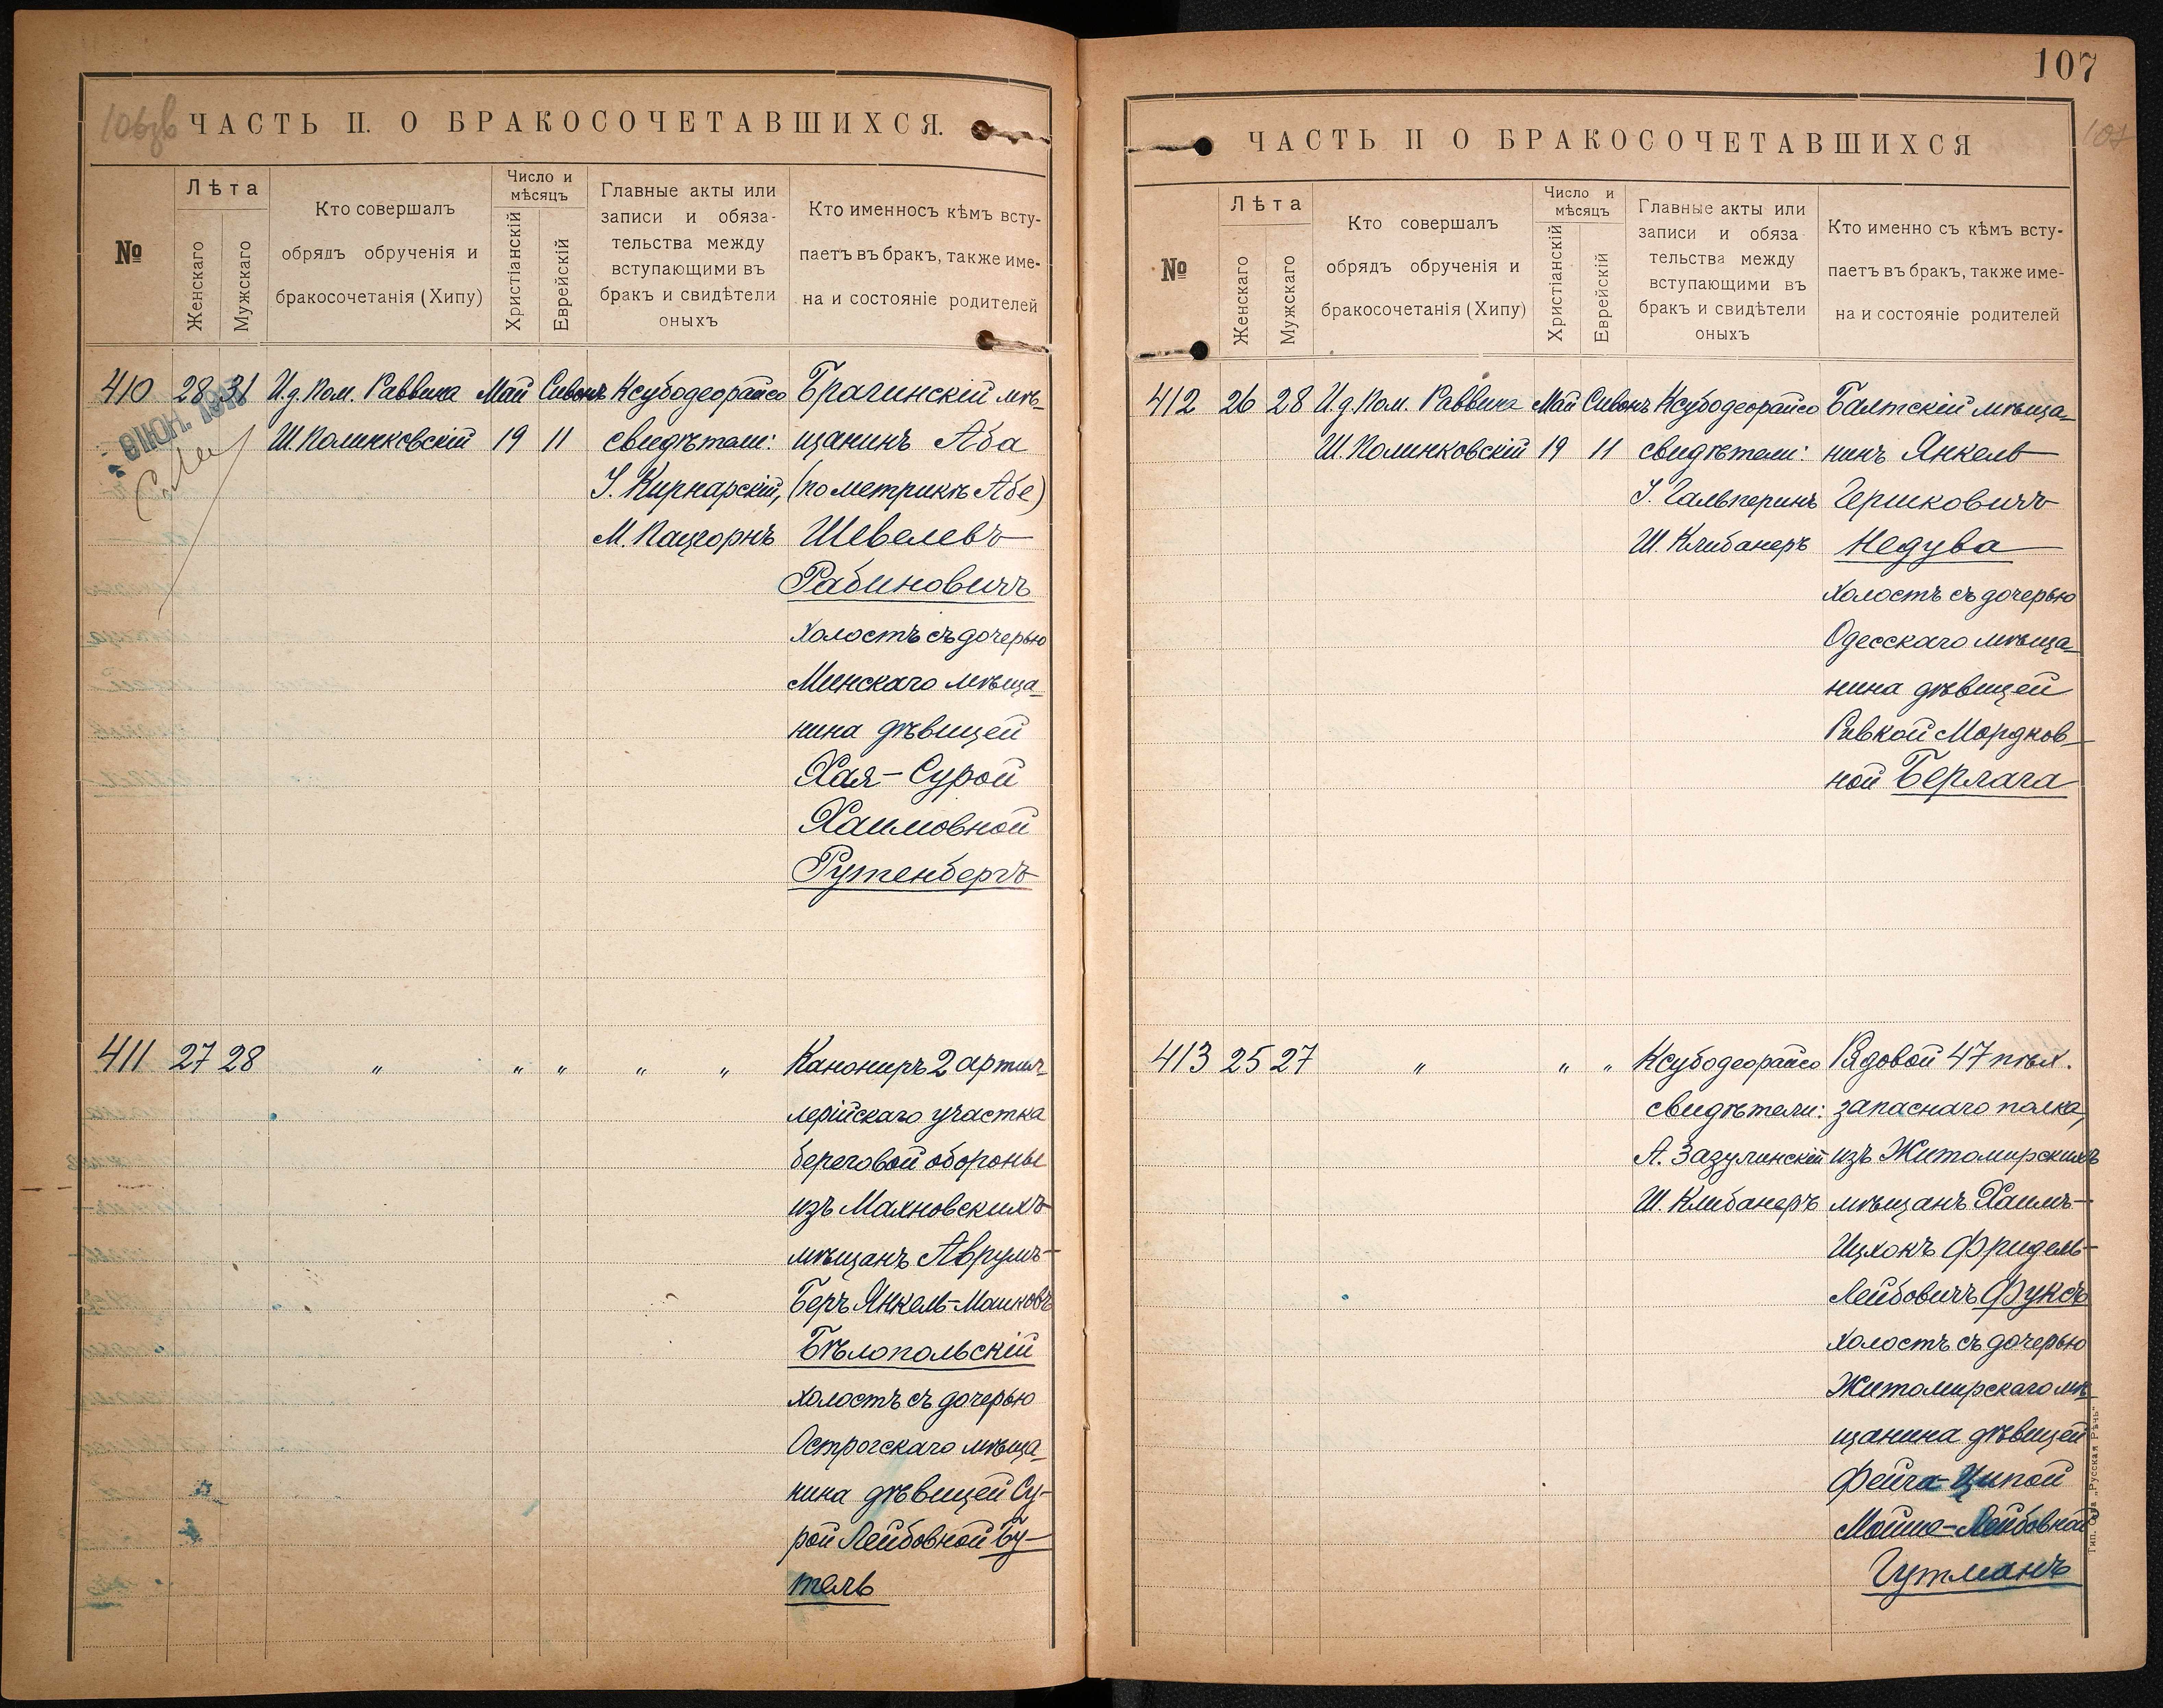 106зв
ЧАСТЬ II. О БРАКОСОЧЕТАВШИХСЯ.
№
Лѣта
Женскаго
Мужскаго
Кто совершалъ
обрядъ обрученія и
бракосочетанія (Хипу)
Число и
мѣсяцъ
Христіанскій
Еврейскій
Главные акты или
записи и обяза-
тельства между
вступающими въ
бракъ и свидѣтели
оныхъ
Кто именносъ кѣмъ всту-
паетъ въ бракъ, также име-
на и состояніе родителей
410 28 31 И.д. Пом. Раввина Май Сивонъ Ксубодеорайсо Брагинскій мѣ-
Ш. Полинковскій 19 11 свидѣтели: щанинъ Аба
І. Кирнарскій, (по метрикѣ Абе)
М. Пацгорнъ Шевелевъ
Рабиновичъ
холостъ съ дочерью
Минскаго мѣща-
нина дѣвицей
Хая-Сурой
Хаимовной
Рутенбергъ
411 27 28 " " " " " Канониръ 2 артил-
лерійскаго участка
береговой обороны
изъ Махновскихъ
мѣщанъ Аврумъ-
Беръ Янкель-Маиковъ
Бѣлопольскій
холостъ съ дочерью
Острогскаго мѣща-
нина дѣвицей Су-
рой Лейбовной Бу-
тель
107
107
ЧАСТЬ II О БРАКОСОЧЕТАВШИХСЯ
№
Лѣта
Женскаго
Мужскаго
Кто совершалъ
обрядъ обрученія и
бракосочетанія (Хипу)
Число и
мѣсяцъ
Христіанскій
Еврейскій
Главные акты или
записи и обяза-
тельства между
вступающими въ
бракъ и свидѣтели
оныхъ
Кто именно съ кѣмъ всту-
паетъ въ бракъ, также име-
на и состояніе родителей
412 26 28 И.д. Пом. Раввина Май Сивонъ Ксубодеорайсо Балтскій мѣща-
Ш. Полинковскій 19 11 свидѣтели: нинъ Янкель
І. Гальперинъ Гершковичъ
Ш. Клибанеръ Недува
холостъ съ дочерью
Одесскаго мѣща-
нина дѣвицей
Ривкой Мордков-
ной Берлага
413 25 27 " " " Ксубодеорайсо Рядовой 47 пѣх.
свидѣтели: запаснаго полка,
А. Зазулинскій изъ Житомирскихъ
Ш. Клибанеръ мѣщанъ Хаимъ-
Ицхокъ Фридель-
Лейбовичъ Фуксъ
холостъ съ дочерью
Житомирскаго мѣ-
щанина дѣвицей
Фейга-Ципой
Мойше-Лейбовной
Гутманъ
Тип. О-ва „Русская Рѣчь"